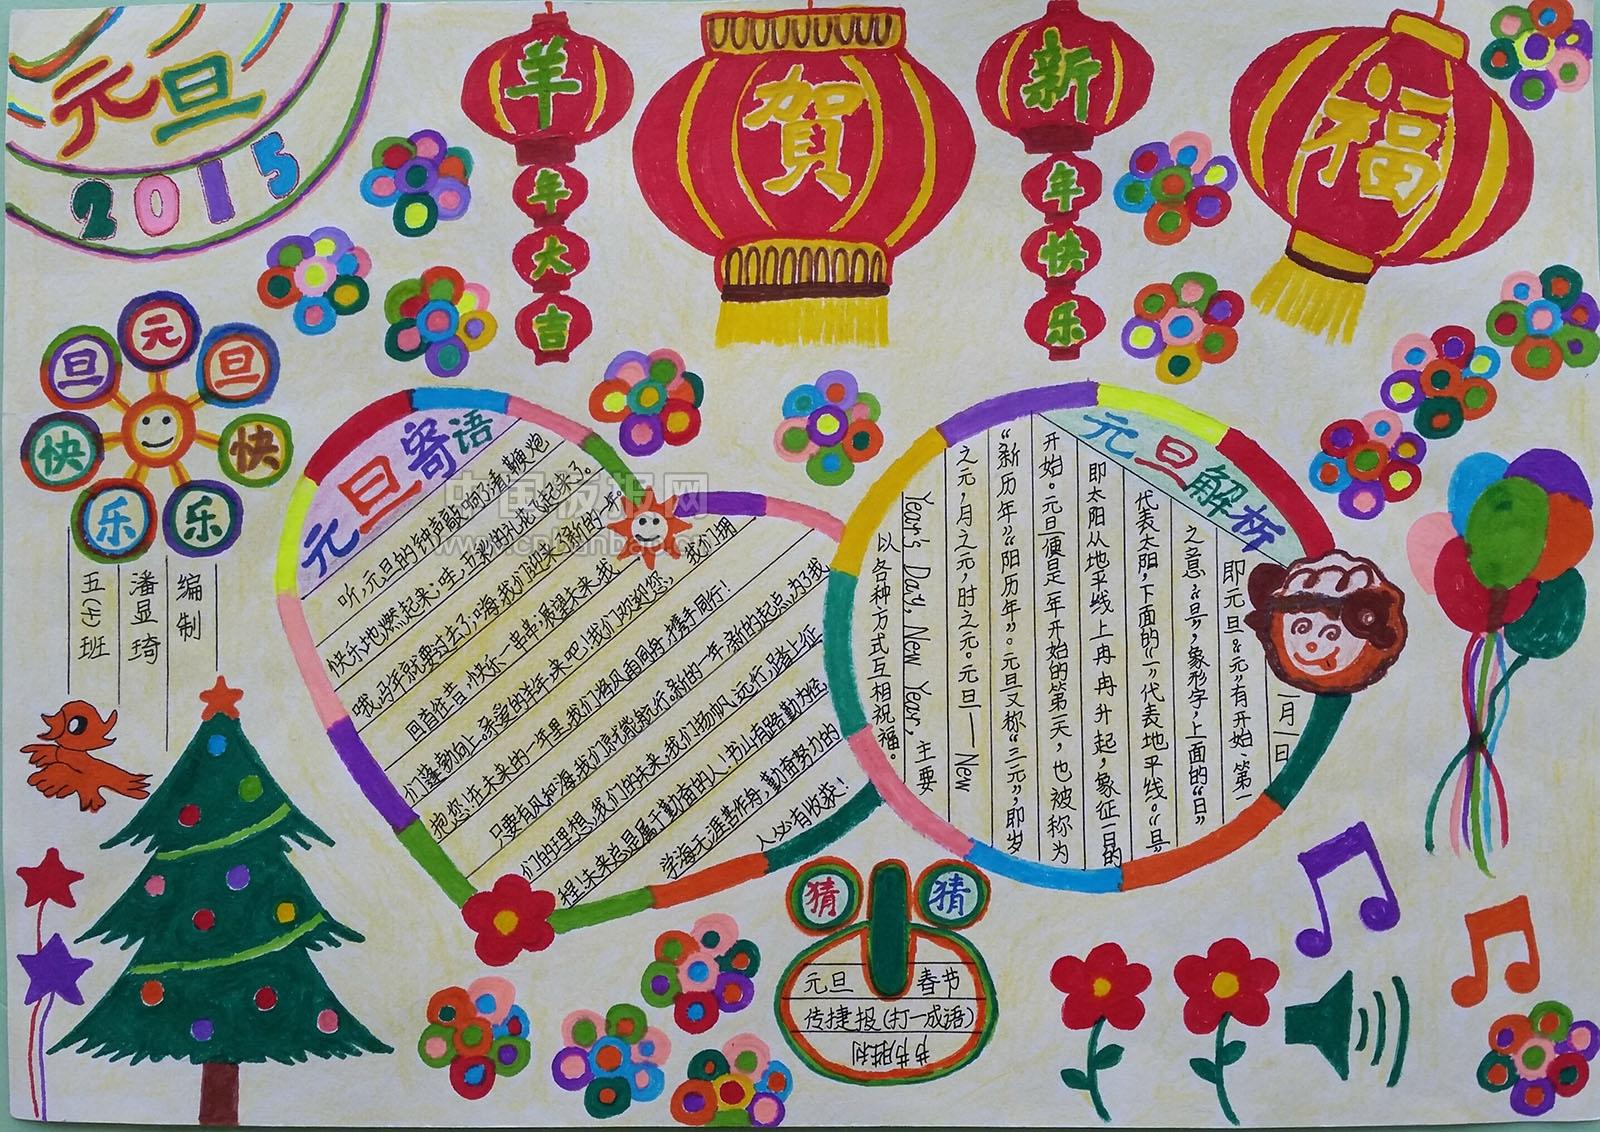 元旦
2015
羊年大吉
賀
新年快乐
福
元旦快乐
旦旦快乐
编制
潘显琦
五(七)班
元旦寄语
听,元旦的钟声敲响了!看,鞭炮
快乐地燃起来;哇,五彩的礼花飞起来了。
哦,马年就要过去了;嗨,我们迎来了新的一年。
回首昨昔,快乐一串串,展望未来,我
们蓬勃向上。亲爱的羊年,来吧!我们欢迎您,我们拥
抱您!在未来的一年里,我们将风雨同舟,携手同行!
只要有风和海,我们就能航行。新的一年,新的起点,为了我
们的理想,我们的未来,我们扬帆,远行,踏上征
程!未来总是属于勤奋的人!书山有路勤为径,
学海无涯苦作舟,勤奋努力的
人必有收获!
元旦解析
一月一日
即元旦。“元”有开始、第一
之意,“旦”,象形字,上面的“日”
代表太阳,下面的“一”代表地平线。“旦”
即太阳从地平线上冉冉升起,象征一日的
开始。元旦便是一年开始的第一天,也被称为
“新历年”“阳历年”。元旦又称“三元”,即岁
之元,月之元,时之元。元旦——New
Year's Day, New Year, 主要
以各种方式互相祝福。
猜猜
元旦 春节
传捷报(打一成语)
节节胜利
中国板报网
www.cnbanbao.c